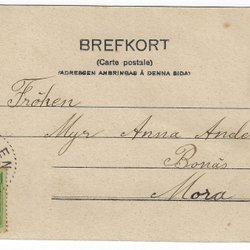 BREFKORT
(Carte postale)
(ADRESSEN ANBRINGAS Å DENNA SIDA)
Fröken
Myr Anna Ande
Bonäs
Mora
EN